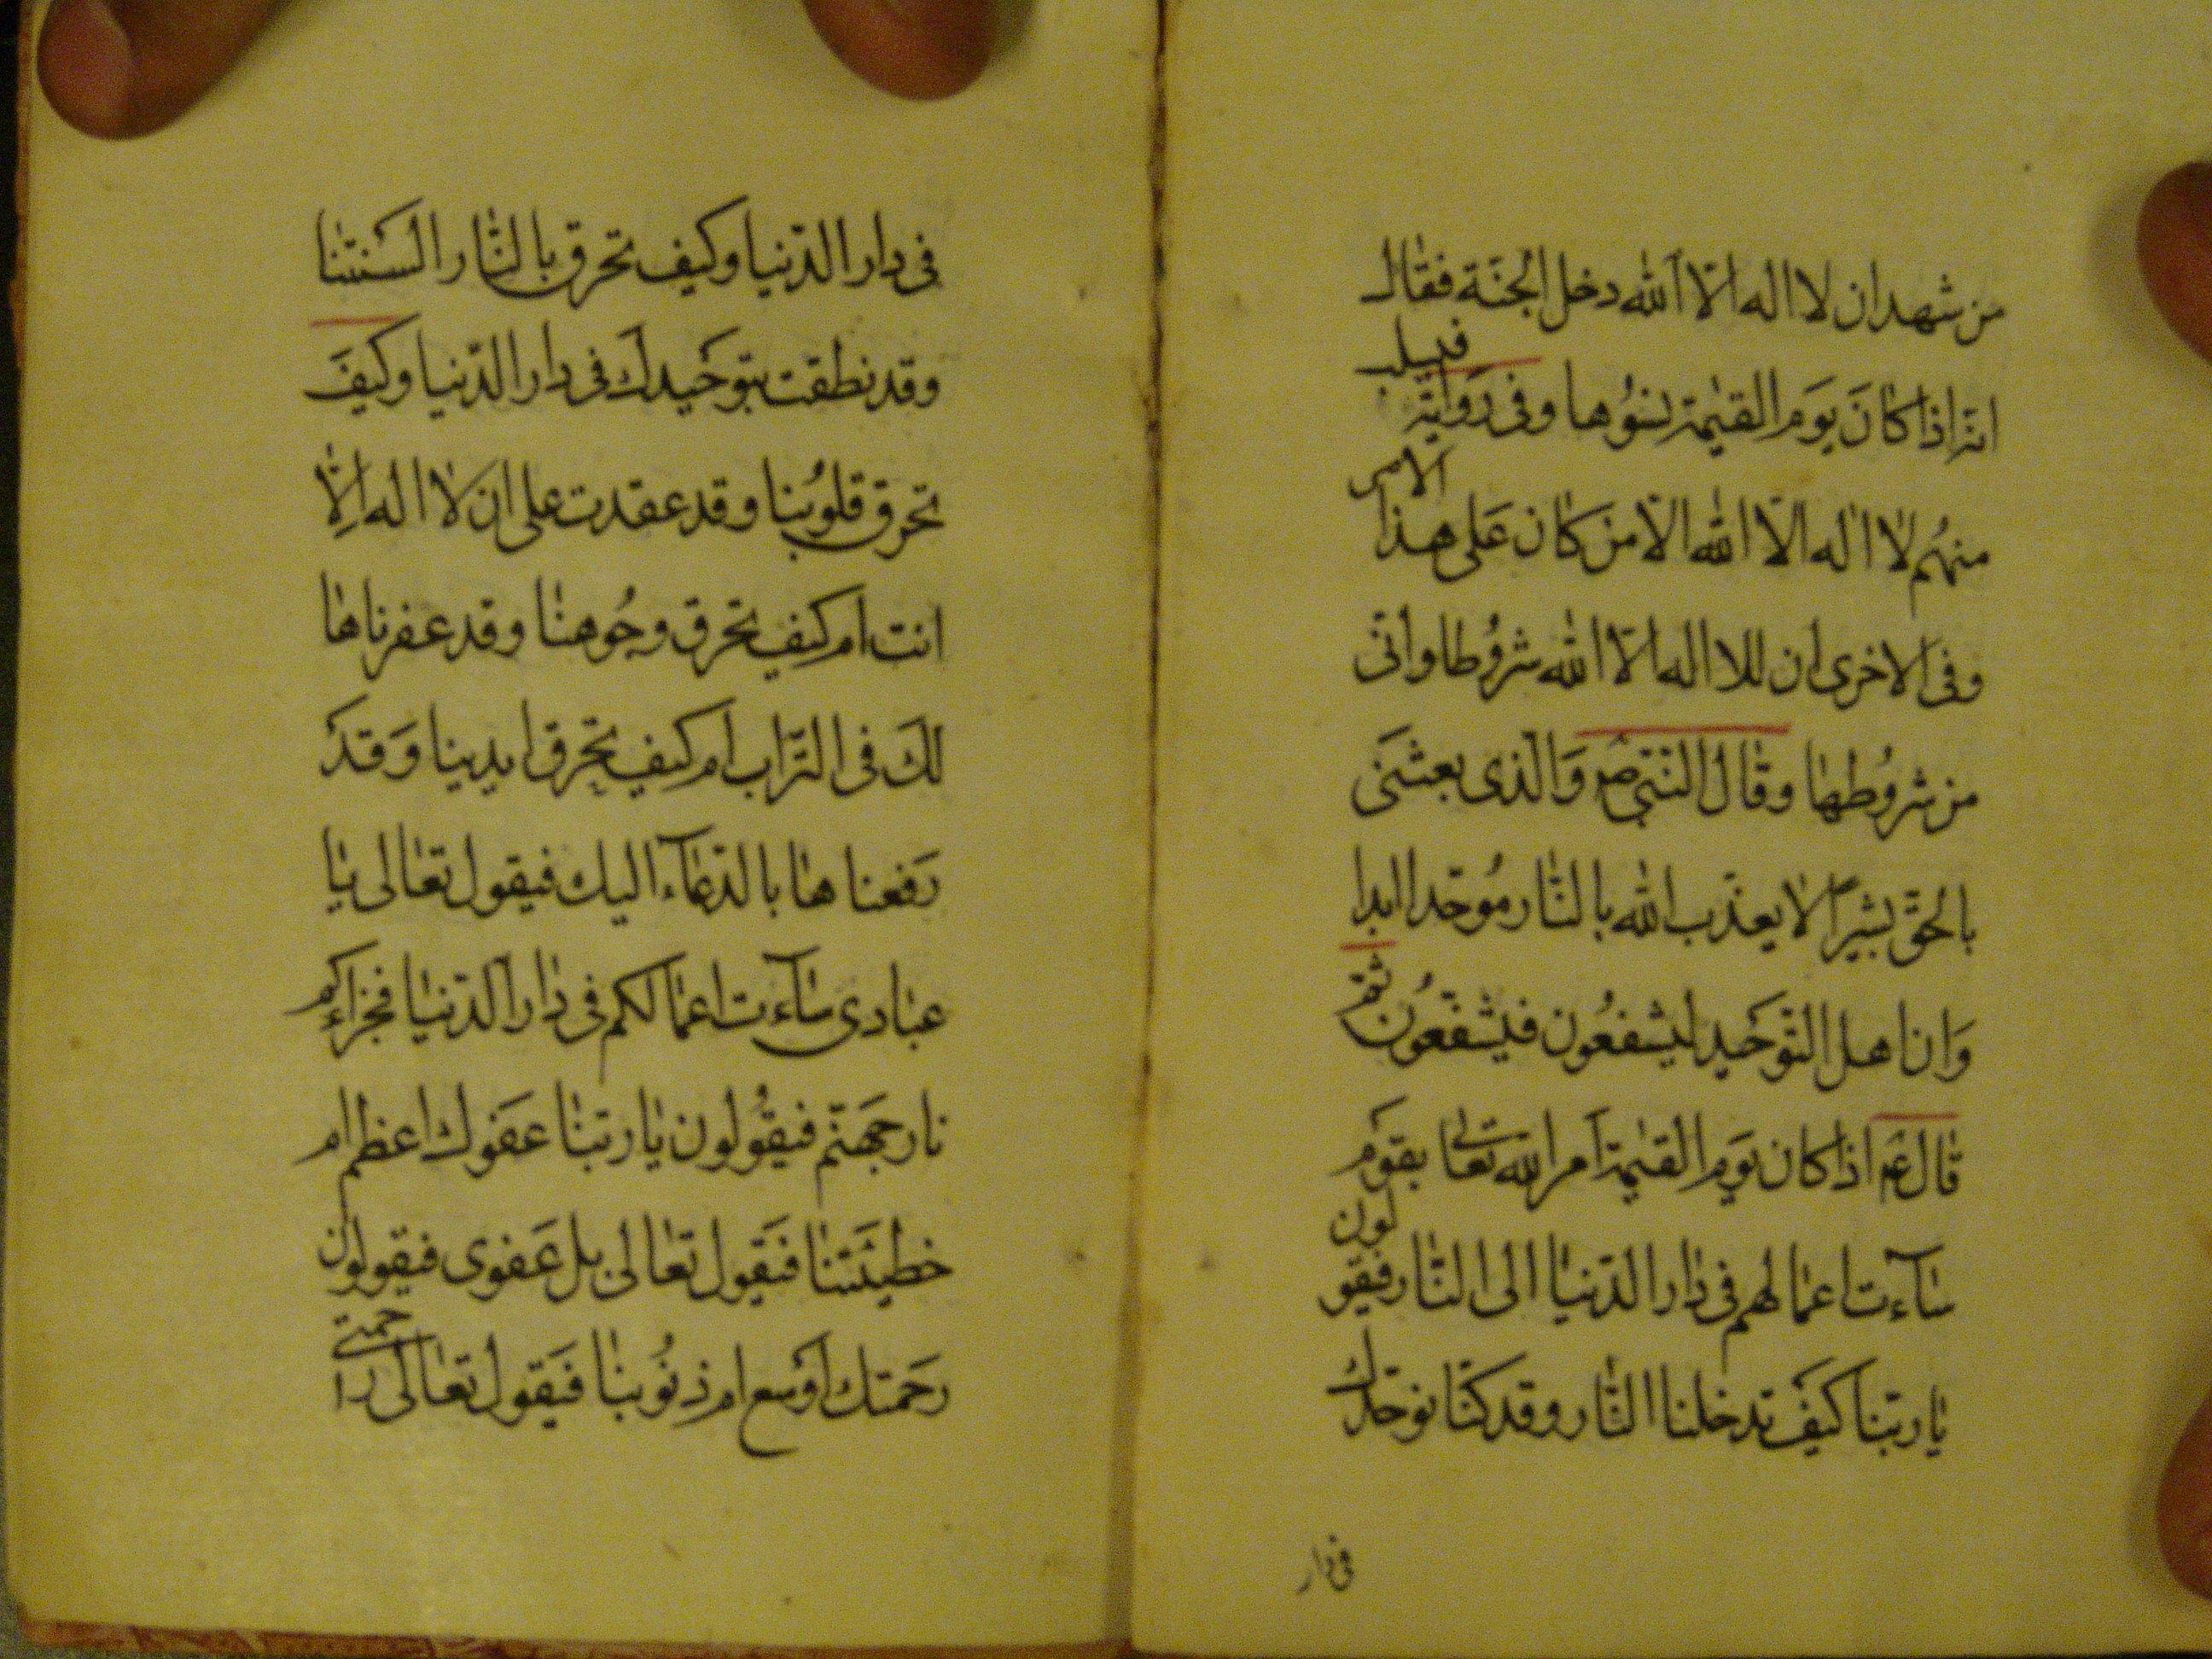 من شهد ان لا اله الّا اللّٰه دخل الجنّة فقال
انّه اذا كانَ يوَم القيٰمة نسوُها وفى رَوايَة فيسلب
منهُم لا اله الّا اللّٰه الّا من كان عَلى هذا الامر
وفى الاخرى ان للا اله الّا اللّٰه شروُطا وانّى
من شروُطهٰا وقٰال النّبىّ ص وَالّذى بعثنَى
بالحقّ بشيراً لا يعذّب اللّٰه بالنّٰار مُوحّدا ابدا
وَان اهل التّوحَيد ليشفعُون فيشفّعُون ثمّ
قٰال عَم اذا كان يوَم القيٰمة اَمر اللّٰه تعٰالى بقوَم
سٰاۤءت اعمٰالهم فى دٰار الدّنيٰا الى النّٰار فيَقولون
يٰا ربّنا كيَف تدخلنا النّٰار وقد كنّا نوحّدك
فى دار
فى دار الدّنيا وكيف تحرق بالنّٰار السَنتنٰا
وقد نطقت بتوحَيدك فى دار الدّنيا وكيَفَ
تحرق قلوُبنا وقد عقدت على ان لا اله اِلّٰا
انت ام كيف تحرق وجُوهنٰا وقد عفرناهٰا
لكَ فى التّرَاب ام كيف تحرق ايدينا وَقد
رَفعناهٰا بالدّعٰاۤء اليك فيقول تعٰالى يٰا
عبٰادى سٰاۤءت اعمٰالكم فى دٰار الدّنيٰا فجزاۤءكم
نار جهَنّم فيقُولون يٰا ربّنٰا عفَوك اعظم ام
خطيئَتنٰا فيَقول تعٰالى بل عَفوى فيقولون
رحَمتك اوَسع ام ذنوُبنٰا فيَقول تعٰالى رحمتى